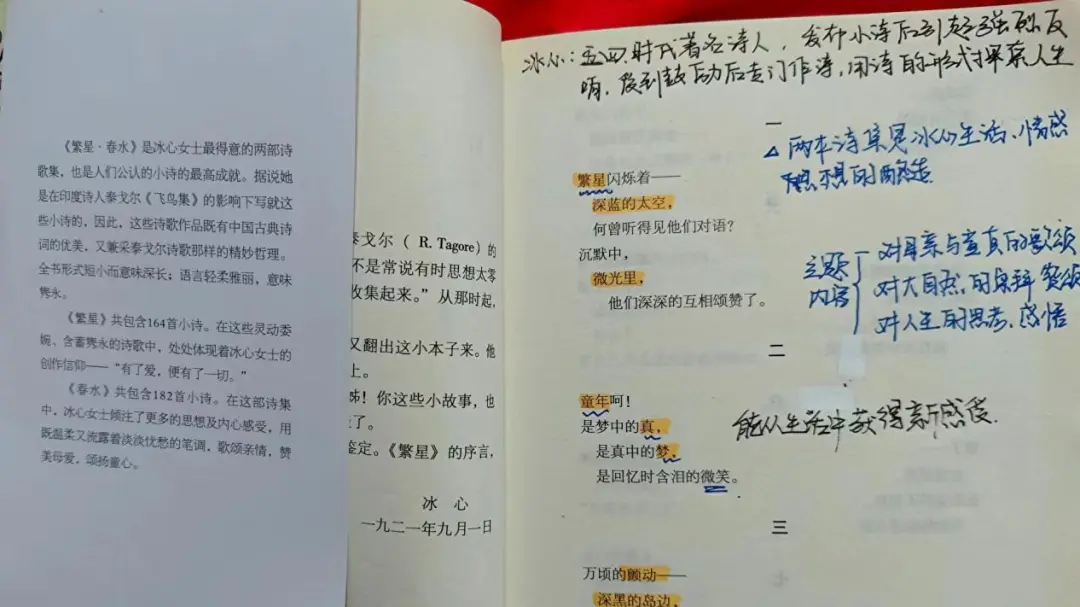 《繁星·春水》是冰心女士最得意的两部诗
歌集，也是人们公认的小诗的最高成就。据说她
是在印度诗人泰戈尔《飞鸟集》的影响下写就这
些小诗的，因此，这些诗歌作品既有中国古典诗
词的优美，又兼采泰戈尔诗歌那样的精妙哲理。
全书形式短小而意味深长；语言轻柔雅丽，意味
隽永。
《繁星》共包含164首小诗。在这些灵动委
婉、含蓄隽永的诗歌中，处处体现着冰心女士的
创作信仰——“有了爱，便有了一切。”
《春水》共包含182首小诗。在这部诗集
中，冰心女士倾注了更多的思想及内心感受，用
既温柔又流露着淡淡忧愁的笔调，歌颂亲情，赞
美母爱，颂扬童心。
泰戈尔（R. Tagore）的
不是常说有时思想太零
收集起来。”从那时起，
又翻出这小本子来。他
上。
姊！你这些小故事，也
了。
鉴定。《繁星》的序言，
冰 心
一九二一年九月一日
冰心：五四时代著名诗人，发布小诗后引起强烈反
响，受到鼓励后专门作诗，用诗的形式探索人生
一
繁星闪烁着——
深蓝的太空，
何曾听得见他们对语？
沉默中，
微光里，
他们深深的互相颂赞了。
两本诗集是冰心生活、情感
思想的
主题
内容
对母亲与童真的歌颂
对大自然的崇拜 赞颂
对人生的思考、感悟
二
童年呵！
是梦中的真，
是真中的梦，
是回忆时含泪的微笑。
能从生活中获得新感受.
三
万顷的颤动——
深黑的岛边，